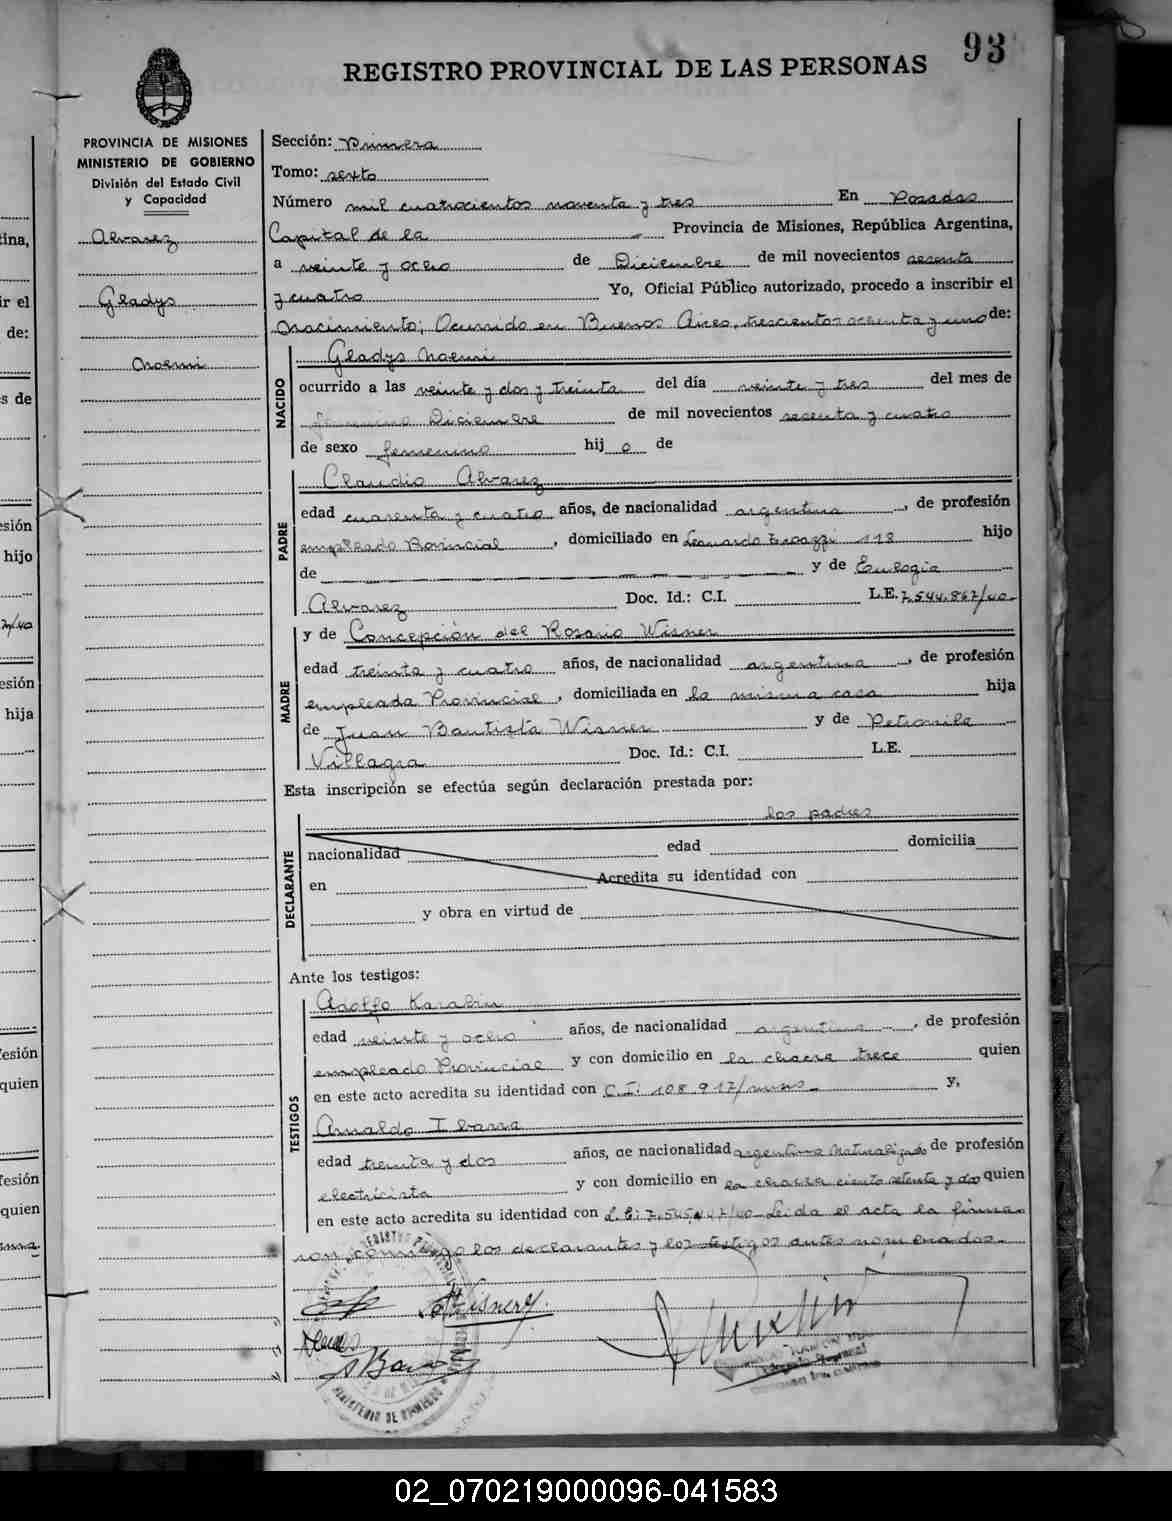 93
REGISTRO PROVINCIAL DE LAS PERSONAS
PROVINCIA DE MISIONES
MINISTERIO DE GOBIERNO
División del Estado Civil
y Capacidad
Alvarez
Gladys
Noemi
Sección: Primera
Tomo: sexto
Número mil cuatrocientos noventa y tres En Posadas
Capital de la Provincia de Misiones, República Argentina,
a veinte y ocho de Diciembre de mil novecientos sesenta
y cuatro Yo, Oficial Público autorizado, procedo a inscribir el
Nacimiento; Ocurrido en Buenos Aires, trescientos ochenta y uno de:
NACIDO
Gladys Noemi
ocurrido a las veinte y dos y treinta del día veinte y tres del mes de
Diciembre de mil novecientos sesenta y cuatro
de sexo femenino hij o de
PADRE
Claudio Alvarez
edad cuarenta y cuatro años, de nacionalidad argentina, de profesión
empleado Provincial, domiciliado en Leonardo 118 hijo
de y de Eulogia
Alvarez Doc. Id.: C.I. L.E. 7.544.867/40-
MADRE
y de Concepción del Rosario Wisner
edad treinta y cuatro años, de nacionalidad argentina, de profesión
empleada Provincial, domiciliada en la misma casa hija
de Juan Bautista Wisner y de Petronila
Villagra Doc. Id.: C.I. L.E.
Esta inscripción se efectúa según declaración prestada por:
los padres
DECLARANTE
nacionalidad edad domicilia
en Acredita su identidad con
y obra en virtud de
Ante los testigos:
TESTIGOS
Adolfo Karabin
edad veinte y ocho años, de nacionalidad argentina, de profesión
empleado Provincial y con domicilio en la chacra trece quien
en este acto acredita su identidad con C.I. 108.917/mnes- y,
Arnaldo Ibarra
edad treinta y dos años, de nacionalidad argentino Naturalizado de profesión
electricista y con domicilio en la chacra ciento setenta y dos quien
en este acto acredita su identidad con L.E: 7.545. /40- Leida el acta la firman
ron, conmigo los declarantes y los testigos antes nomerados.-
MINISTERIO DE GOBIERNO
02_070219000096-041583